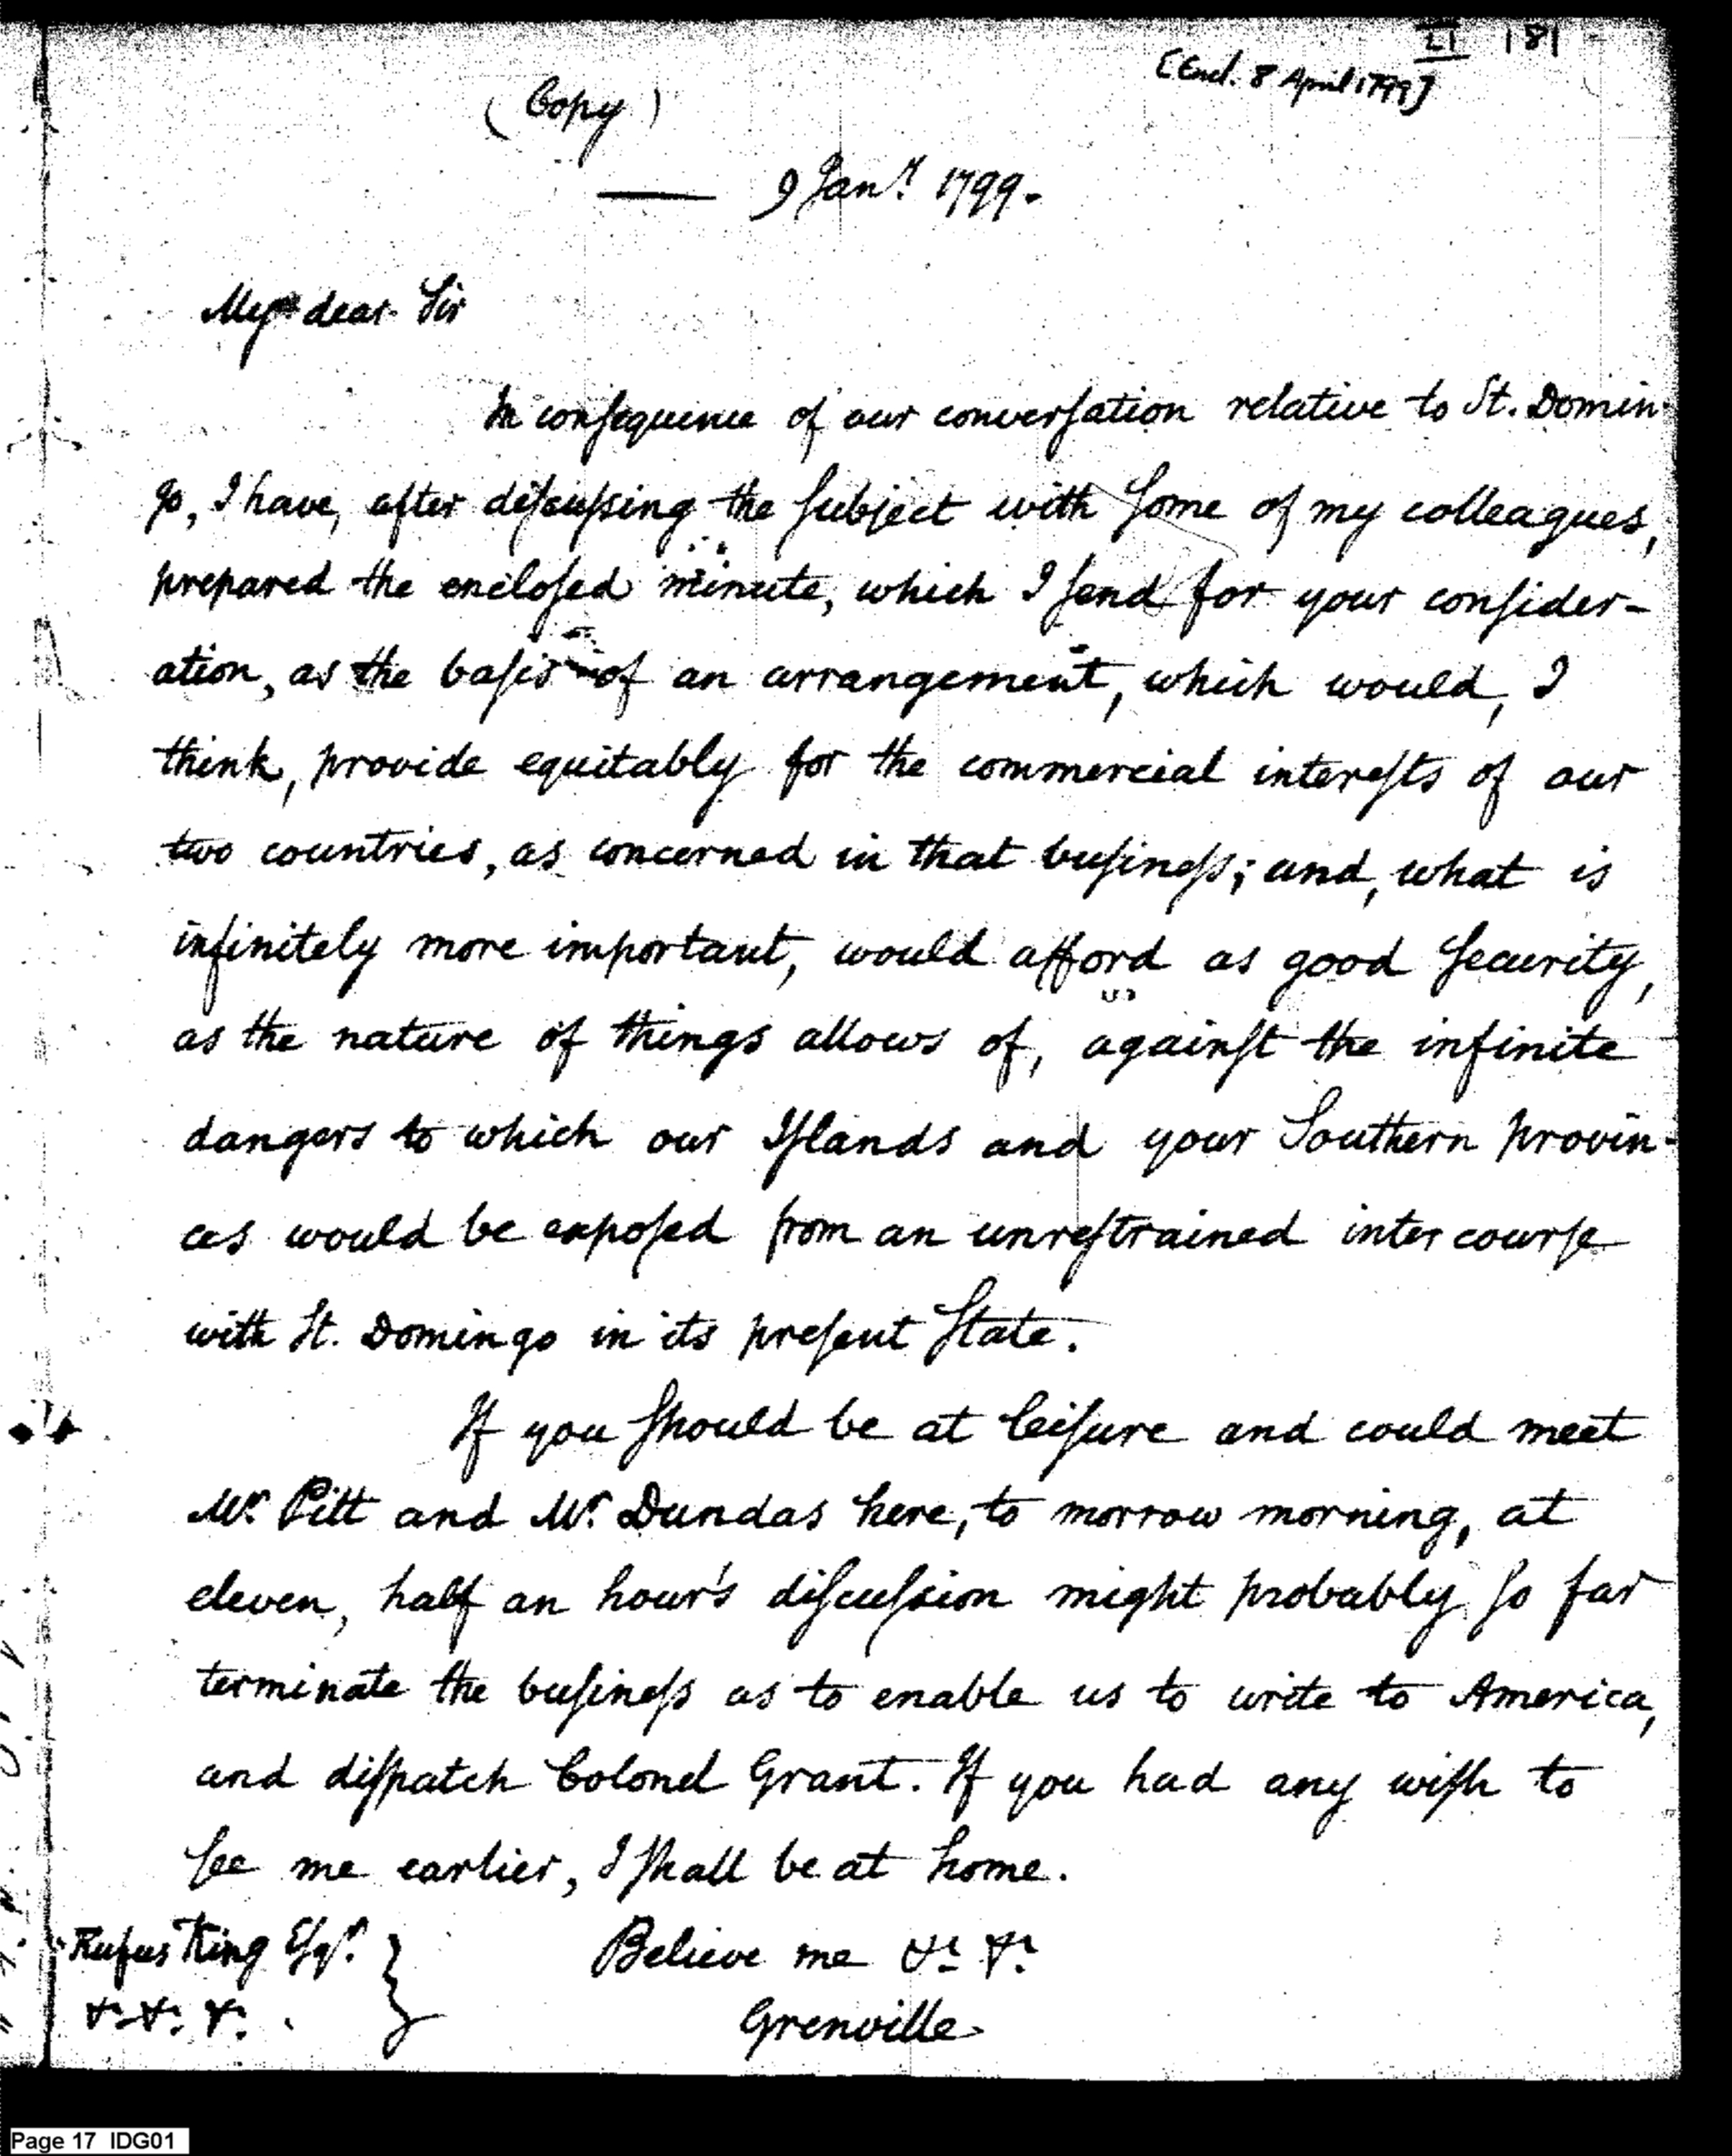 II 181
[Encl. 8 April 1799]
(Copy)
— 9 Janʸ. 1799.
My dear Sir
In conſequence of our converſation relative to St. Domin-
go, I have, after diſcuſsing the ſubject with ſome of my colleagues,
prepared the encloſed minute, which I ſend for your conſider-
ation, as the baſis of an arrangement, which would, I
think, provide equitably for the commercial intereſts of our
two countries, as concerned in that buſineſs; and, what is
infinitely more important, would afford as good ſecurity,
as the nature of things allows of, againſt the infinite
dangers to which our Iſlands and your Southern provin-
ces would be expoſed from an unreſtrained intercourſe
with St. Domingo in its preſent State.
If you ſhould be at leiſure and could meet
Mʳ. Pitt and Mʳ. Dundas here, to morrow morning, at
eleven, half an hour's diſcuſsion might probably ſo far
terminate the buſineſs as to enable us to write to America,
and diſpatch Colonel Grant. If you had any wiſh to
ſee me earlier, I ſhall be at home.
Rufus King Eſqʳ. } Believe me &ᶜ. &ᶜ.
&ᶜ. &ᶜ. &ᶜ. Grenville
Page 17 IDG01